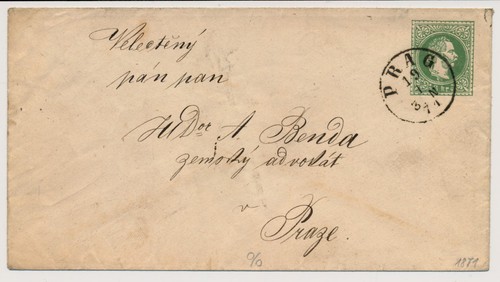 Velectěný
pán pan
JUDor A Benda
zemský advokát
v
Praze.
PRAG
19
71
%
1871